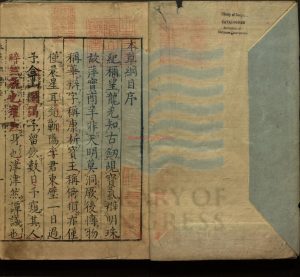 本草綱目序
紀稱望龍光知古劍覘寶氣辨明珠
故萍實商羊非天明莫洞厥後博物
稱華辨字稱康析寶玉稱倚頓亦僅
僅晨星耳楚蘄陽李君東璧一日過
予弇山園謁予留飲數日予窺其人
睟然貌也癯然身也津津然譚議也
LIBRARY OF
CONGRESS